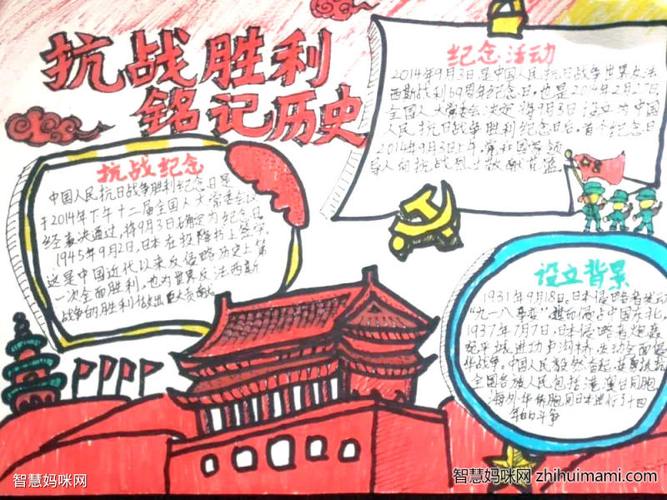 抗战胜利
铭记历史
纪念活动
2014年9月3日是中国人民抗日战争暨世界反法
西斯战利69周年纪念日,也是2014年2月27日
全国人大常委会决定将9月3日设立为中国
人民抗日战争胜利纪念日后,首个纪念日
2014年9月3日上午,党和国家领
导人向抗战烈士敬献花篮
抗战纪念
中国人民抗日战争胜利纪念日是
于2014年下午十二届全国人大常委会以
经表决通过,将9月3日确定为纪念日
1945年9月2日,日本在投降书上签字
这是中国近代以来反侵略历史上第
一次全面胜利,也为世界反法西斯
战争的胜利做出巨大贡献
设立背景
1931年9月18日,日本侵略者发动
"九一八事变",占中国东北
1937年7月7日,日本侵略者炮轰
宛平城进攻卢沟桥,发动全面侵
华战争。中国人民毅然奋起
全国各族人民包括港澳台同胞
海外华侨胞同日本进行了十四
年的斗争
智慧妈咪网
智慧妈咪网 zhihuimami.com